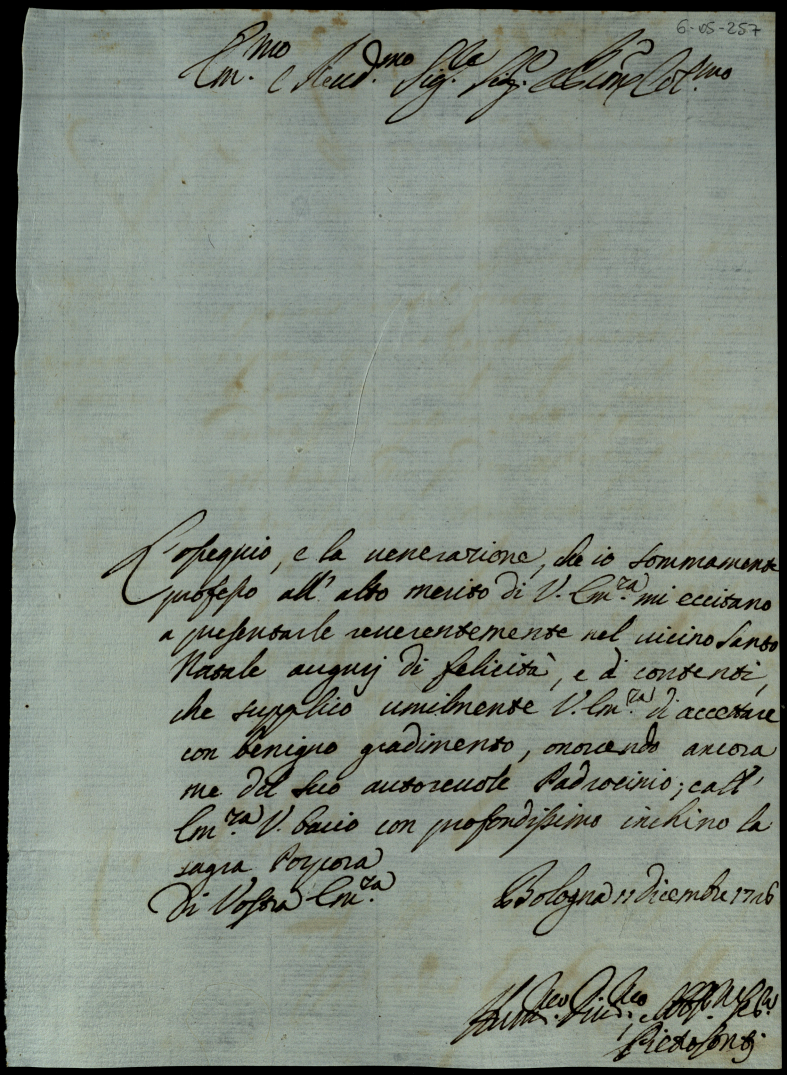 6-05-257
Em.mo e Reud.mo Sig.re Sig.r
L'ossequio, e la uenerazione, che io sommamente
professo all' alto merito di V. Em.za mi eccitano
a presentarle reuerentemente nel uicino Santo
Natale augurj di felicità, e di contenti,
che supplico umilmente V. Em.za di accettare
con benigno gradimento, onorando ancora
me del suo autoreuole Padrocinio; e all'
Em.za V. bacio con profondissimo inchino la
sagra Porpora
Di Vostra Em.za
Bologna 11 Dicembre 17